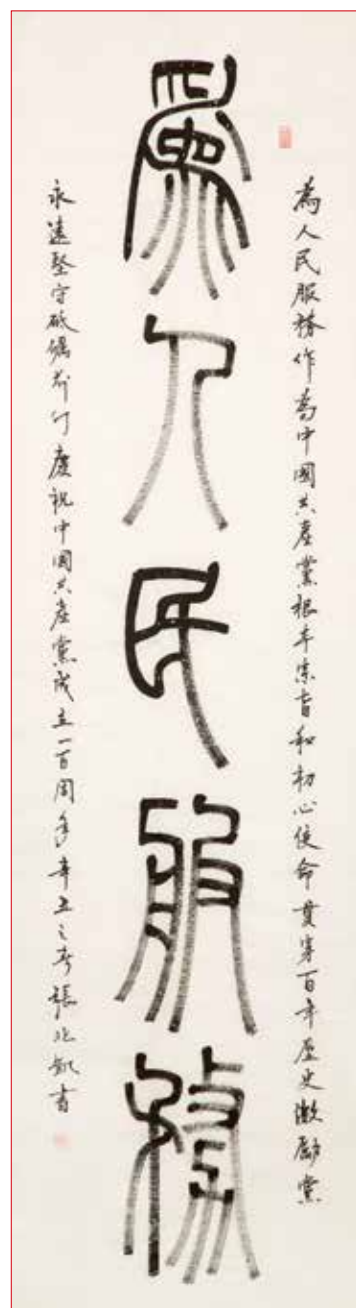 為人民服務
為人民服務作為中國共產黨根本宗旨和初心使命貫穿百年歷史激勵黨
永遠堅守砥礪前行慶祝中國共產黨成立一百周年辛丑之春張兆凱書